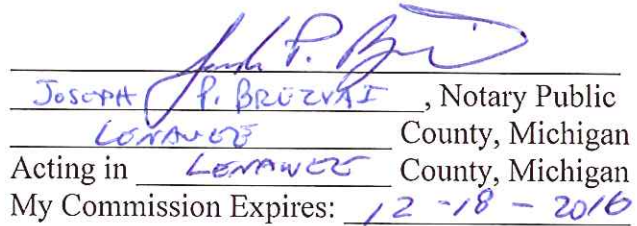 Joseph P. Brezvai, Notary Public
Lenawee County, Michigan
Acting in Lenawee County, Michigan
My Commission Expires: 12-18-2016